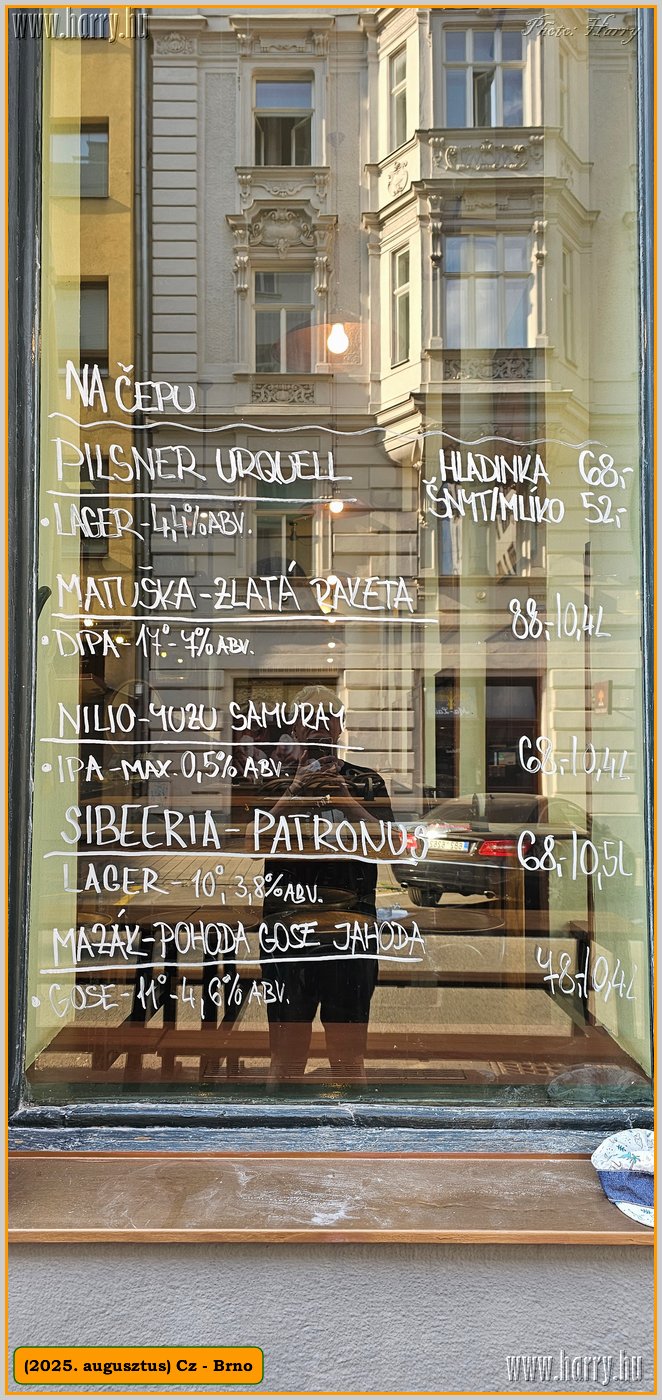 www.harry.hu
Photo: Harry
NA ČEPU
PILSNER URQUELL HLADINKA 68,-
• LAGER - 4,4% ABV. ŠNYT/MLÍKO 52,-
MATUŠKA - ZLATÁ RAKETA
• DIPA - 17° - 7% ABV. 88,-/0,4L
NILIO - YUZU SAMURAY
• IPA - MAX. 0,5% ABV. 68,-/0,4L
SIBEERIA - PATRONUS 68,-/0,5L
LAGER - 10°, 3,8% ABV.
MAZÁK - POHODA GOSE JAHODA
• GOSE - 11° - 4,6% ABV. 78,-/0,4L
(2025. augusztus) Cz - Brno
www.harry.hu